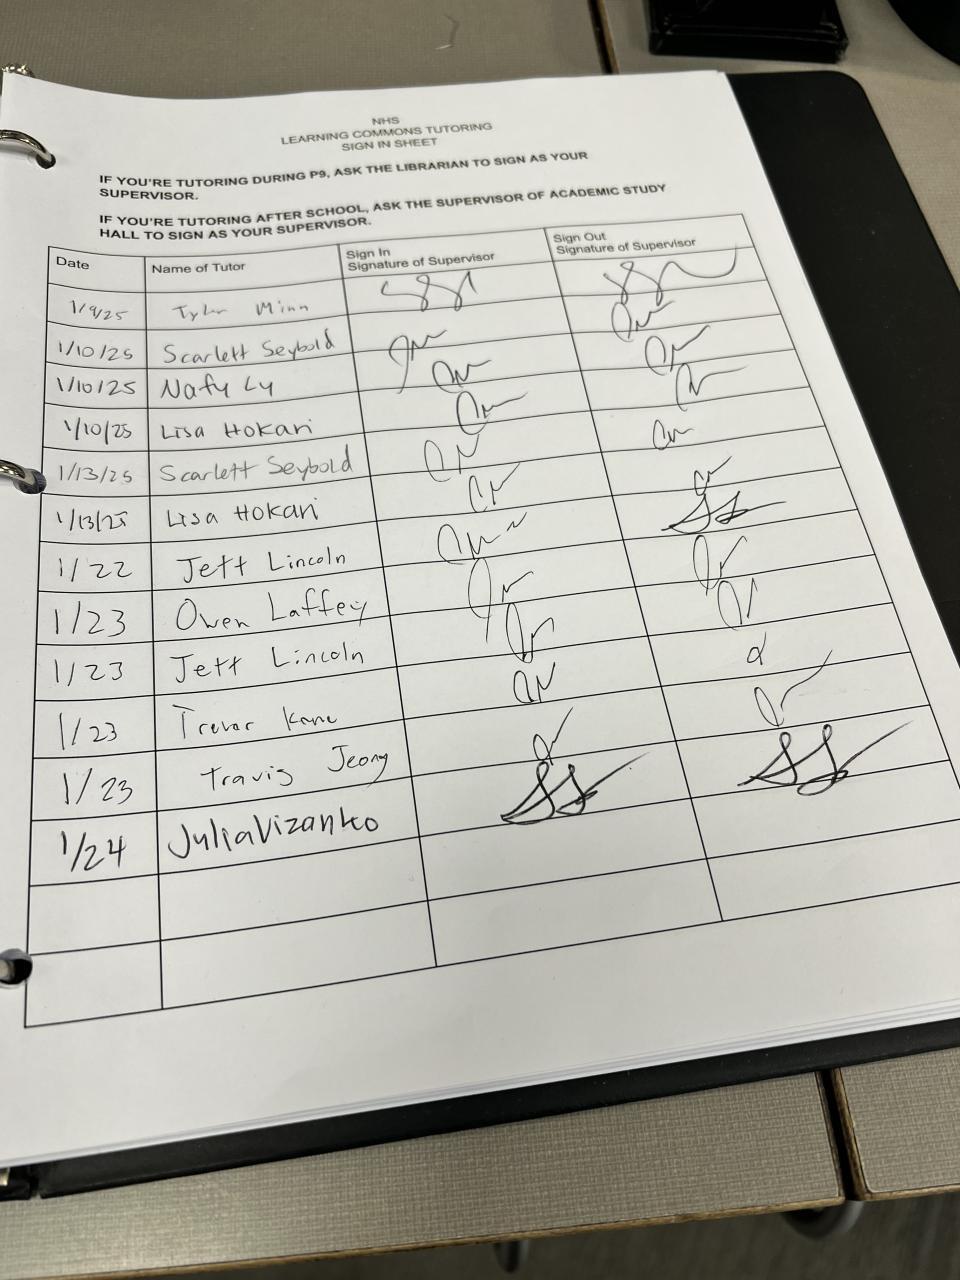 NHS
LEARNING COMMONS TUTORING
SIGN IN SHEET
IF YOU'RE TUTORING DURING P9, ASK THE LIBRARIAN TO SIGN AS YOUR
SUPERVISOR.
IF YOU'RE TUTORING AFTER SCHOOL, ASK THE SUPERVISOR OF ACADEMIC STUDY
HALL TO SIGN AS YOUR SUPERVISOR.
Date Name of Tutor Sign In Signature of Supervisor Sign Out Signature of Supervisor
1/9/25 Tyler Minn
1/10/25 Scarlett Seybold
1/10/25 Nafy Ly
1/10/25 Lisa Hokari
1/13/25 Scarlett Seybold
1/13/25 Lisa Hokari
1/22 Jett Lincoln
1/23 Owen Laffey
1/23 Jett Lincoln
1/23 Trevor Kane
1/23 Travis Jeong
1/24 Julia Vizanko